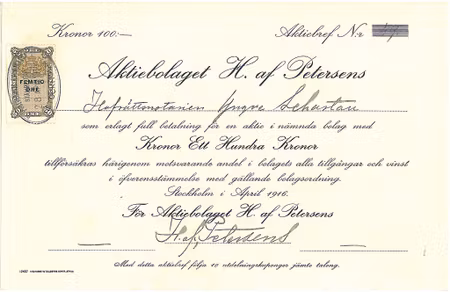 Kronor 100:—
Aktiebref N:r
FEMTIO
ÖRE
Aktiebolaget H. af Petersens
Hofrättsnotarien Yngve Schartau
som erlagt full betalning för en aktie i nämnda bolag med
Kronor Ett Hundra Kronor
tillförsäkras härigenom motsvarande andel i bolagets alla tillgångar och vinst
i öfverensstämmelse med gällande bolagsordning.
Stockholm i April 1916.
För Aktiebolaget H. af Petersens
H. af Petersens
Med detta aktiebref följa 10 utdelningskuponger jämte talong.